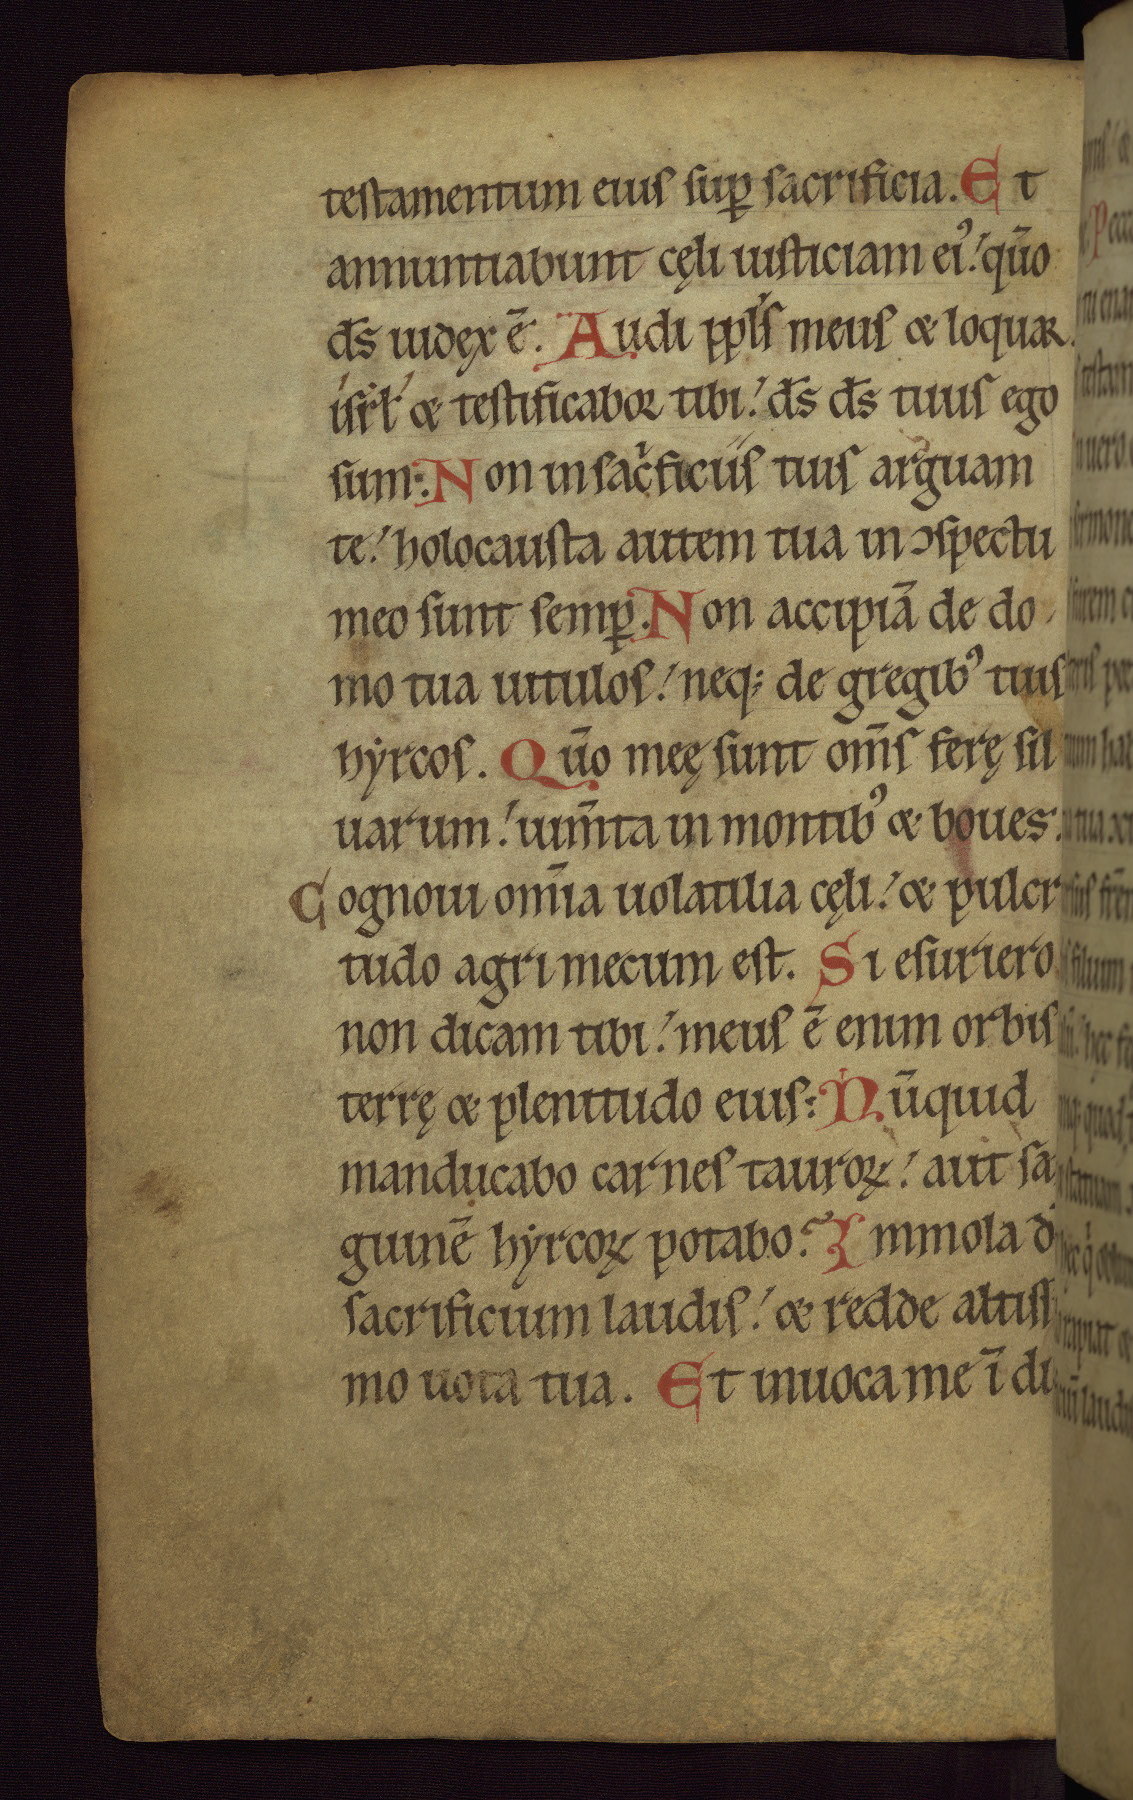 testamentum eius sup̱ sacrificia. Et
annuntiabunt cęli iusticiam ei᾿: qūo
d̄s iudęx ē. Audi pp̄ls meus & loquar.
isrl̄ & testificabor tibi: d̄s d̄s tuus ego
sum: Non in sac̄ficiis tuis arguam
te: holocausta autem tua in ɔspectu
meo sunt semp̱. Non accipiā de do
mo tua uitulos: neq; de gregib᾿ tuis
hẏrcos. Qūo meę sunt om̄s ferę sil
uarum: ium̄ta in montib᾿ & boues.
Cognoui om̄ia uolatilia cęli: & pulcr
tudo agri mecum est. Si esuriero
non dicam tibi: meus ē enim orbis
terrę & plenitudo eius: Nūquid
manducabo carnes tauroꝝ: aut sa
guinē hẏrcoꝝ potabo? Immola d̄
sacrificium laudis: & redde altiss
mo uota tua. Et inuoca me ī di